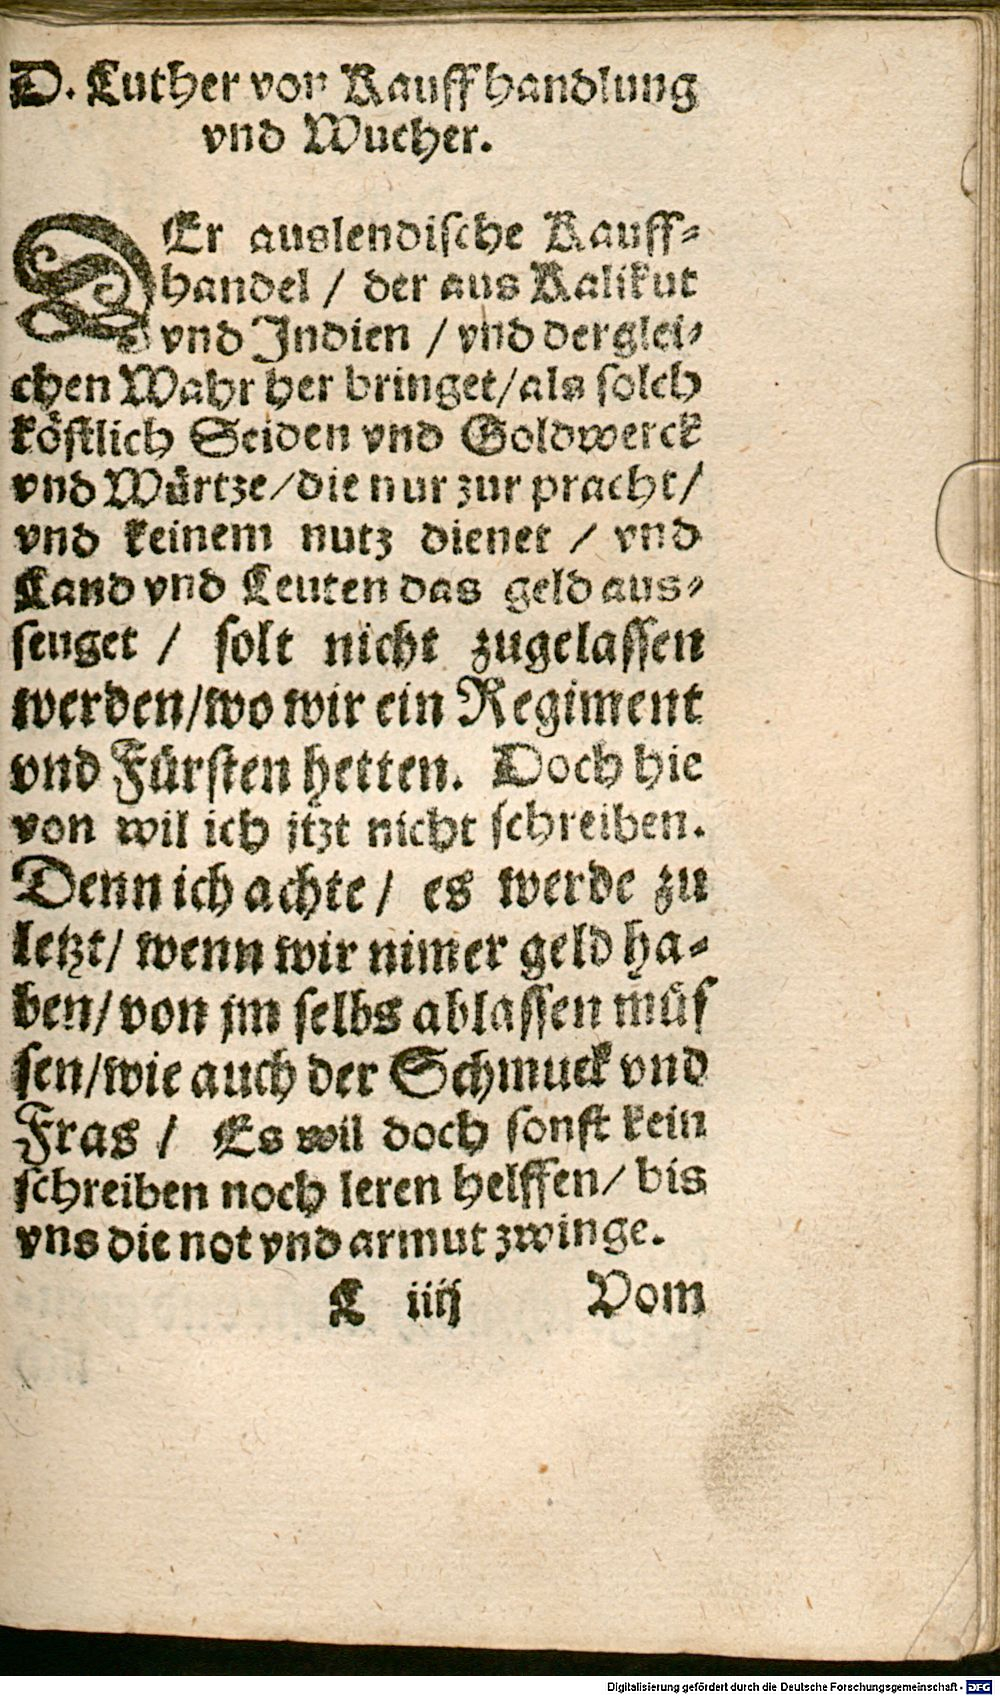 D. Luther von Kauffhandlung
vnd Wucher.
DEr auslendische Kauff-
handel / der aus Kalikut
vnd Indien / vnd derglei-
chen Wahr her bringet/als solch
köstlich Seiden vnd Goldwerck
vnd Würtze/die nur zur pracht/
vnd keinem nutz dienet / vnd
Land vnd Leuten das geld aus-
seuget / solt nicht zugelassen
werden/wo wir ein Regiment
vnd Fürsten hetten. Doch hie
von wil ich jtzt nicht schreiben.
Denn ich achte / es werde zu
letzt/ wenn wir nimer geld ha-
ben/von jm selbs ablassen müs
sen/wie auch der Schmuck vnd
Fras / Es wil doch sonst kein
schreiben noch leren helffen/ bis
vns die not vnd armut zwinge.
L iiij Vom
Digitalisierung gefördert durch die Deutsche Forschungsgemeinschaft - DFG